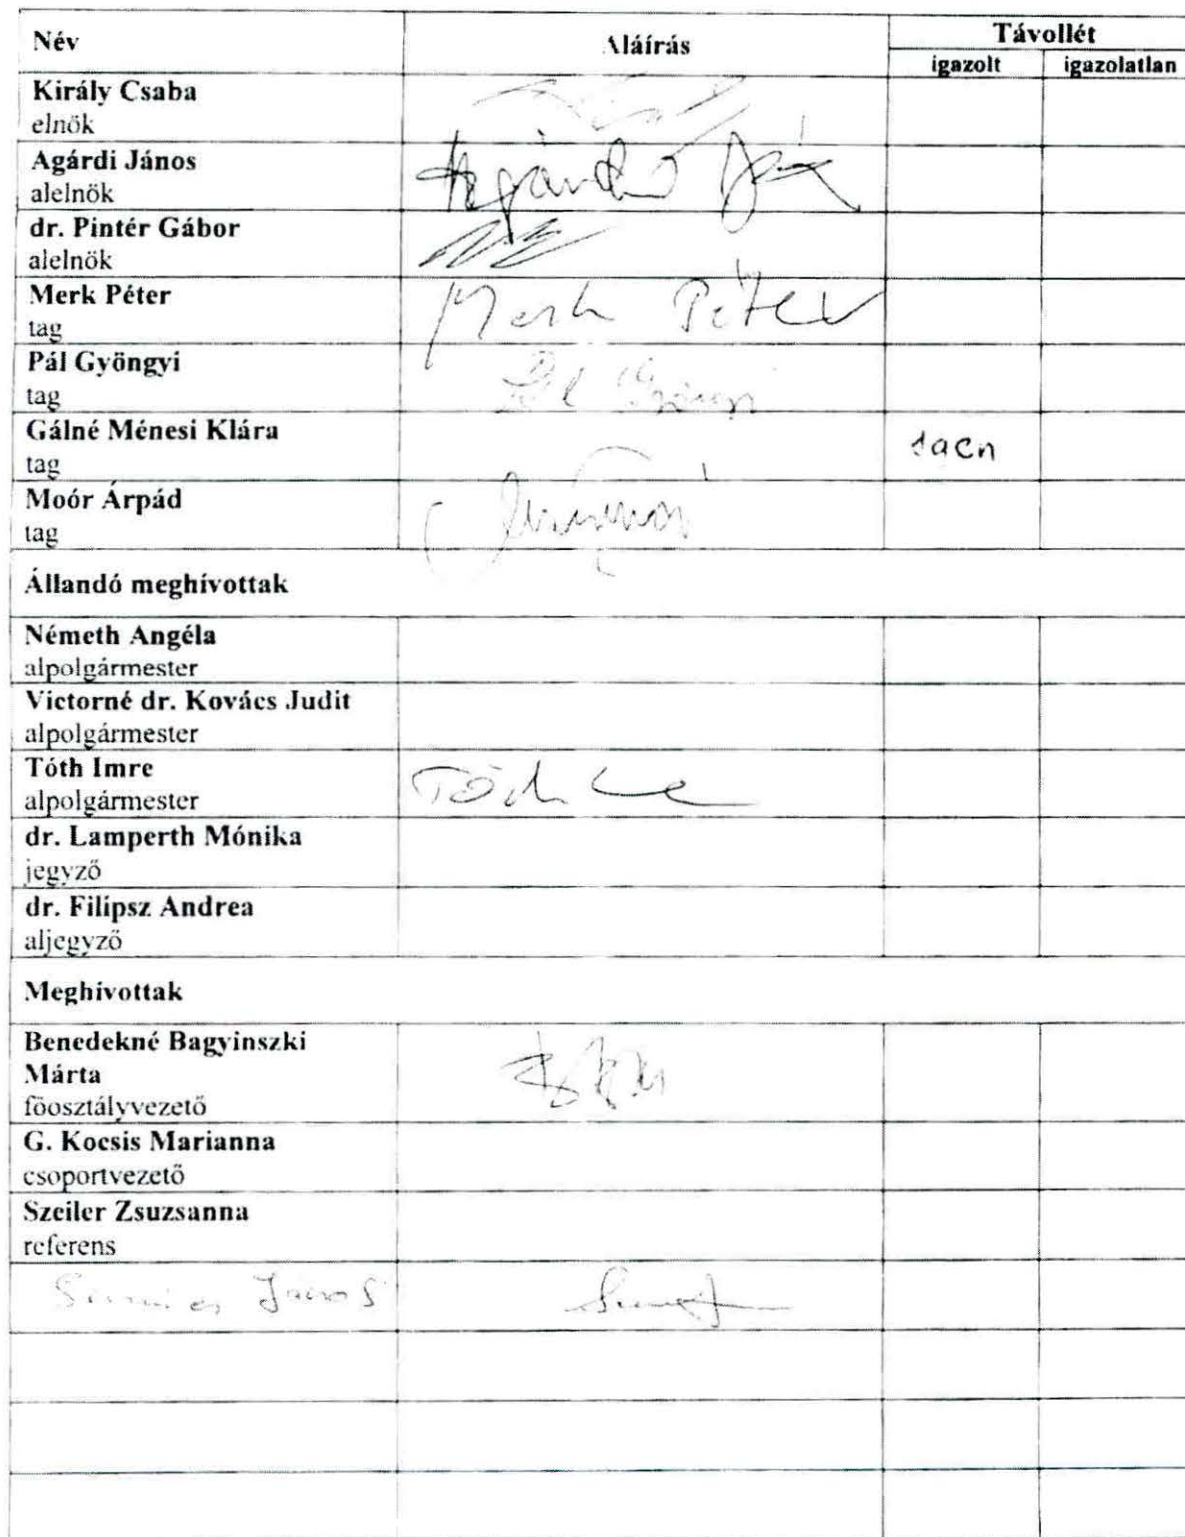 Név Aláírás Távollét
igazolt igazolatlan
Király Csaba
elnök
Agárdi János
alelnök
dr. Pintér Gábor
alelnök
Merk Péter Merk Péter
tag
Pál Gyöngyi
tag
Gálné Ménesi Klára
tag
Moór Árpád
tag
Állandó meghívottak
Németh Angéla
alpolgármester
Victorné dr. Kovács Judit
alpolgármester
Tóth Imre
alpolgármester
dr. Lamperth Mónika
jegyző
dr. Filipsz Andrea
aljegyző
Meghívottak
Benedekné Bagyinszki
Márta
főosztályvezető
G. Kocsis Marianna
csoportvezető
Szeiler Zsuzsanna
referens
János